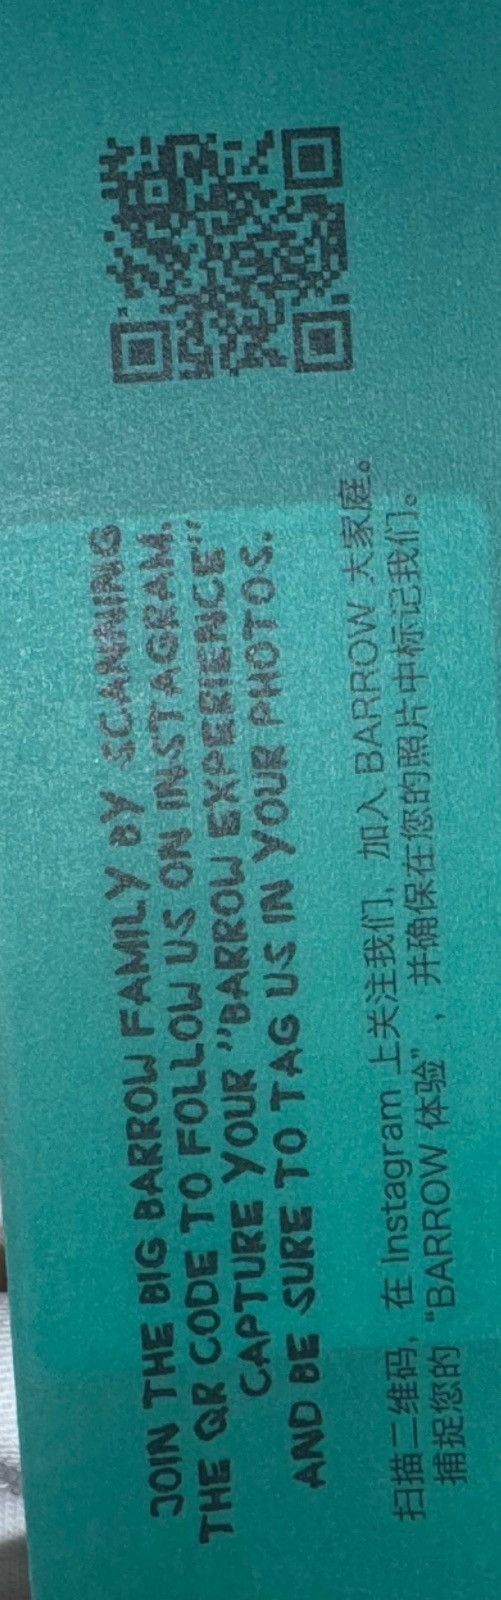 JOIN THE BIG BARROW FAMILY BY SCANNING
THE QR CODE TO FOLLOW US ON INSTAGRAM.
CAPTURE YOUR "BARROW EXPERIENCE"
AND BE SURE TO TAG US IN YOUR PHOTOS.
扫描二维码，在 Instagram 上关注我们，加入 BARROW 大家庭。
捕捉您的 “BARROW 体验” ，并确保在您的照片中标记我们。